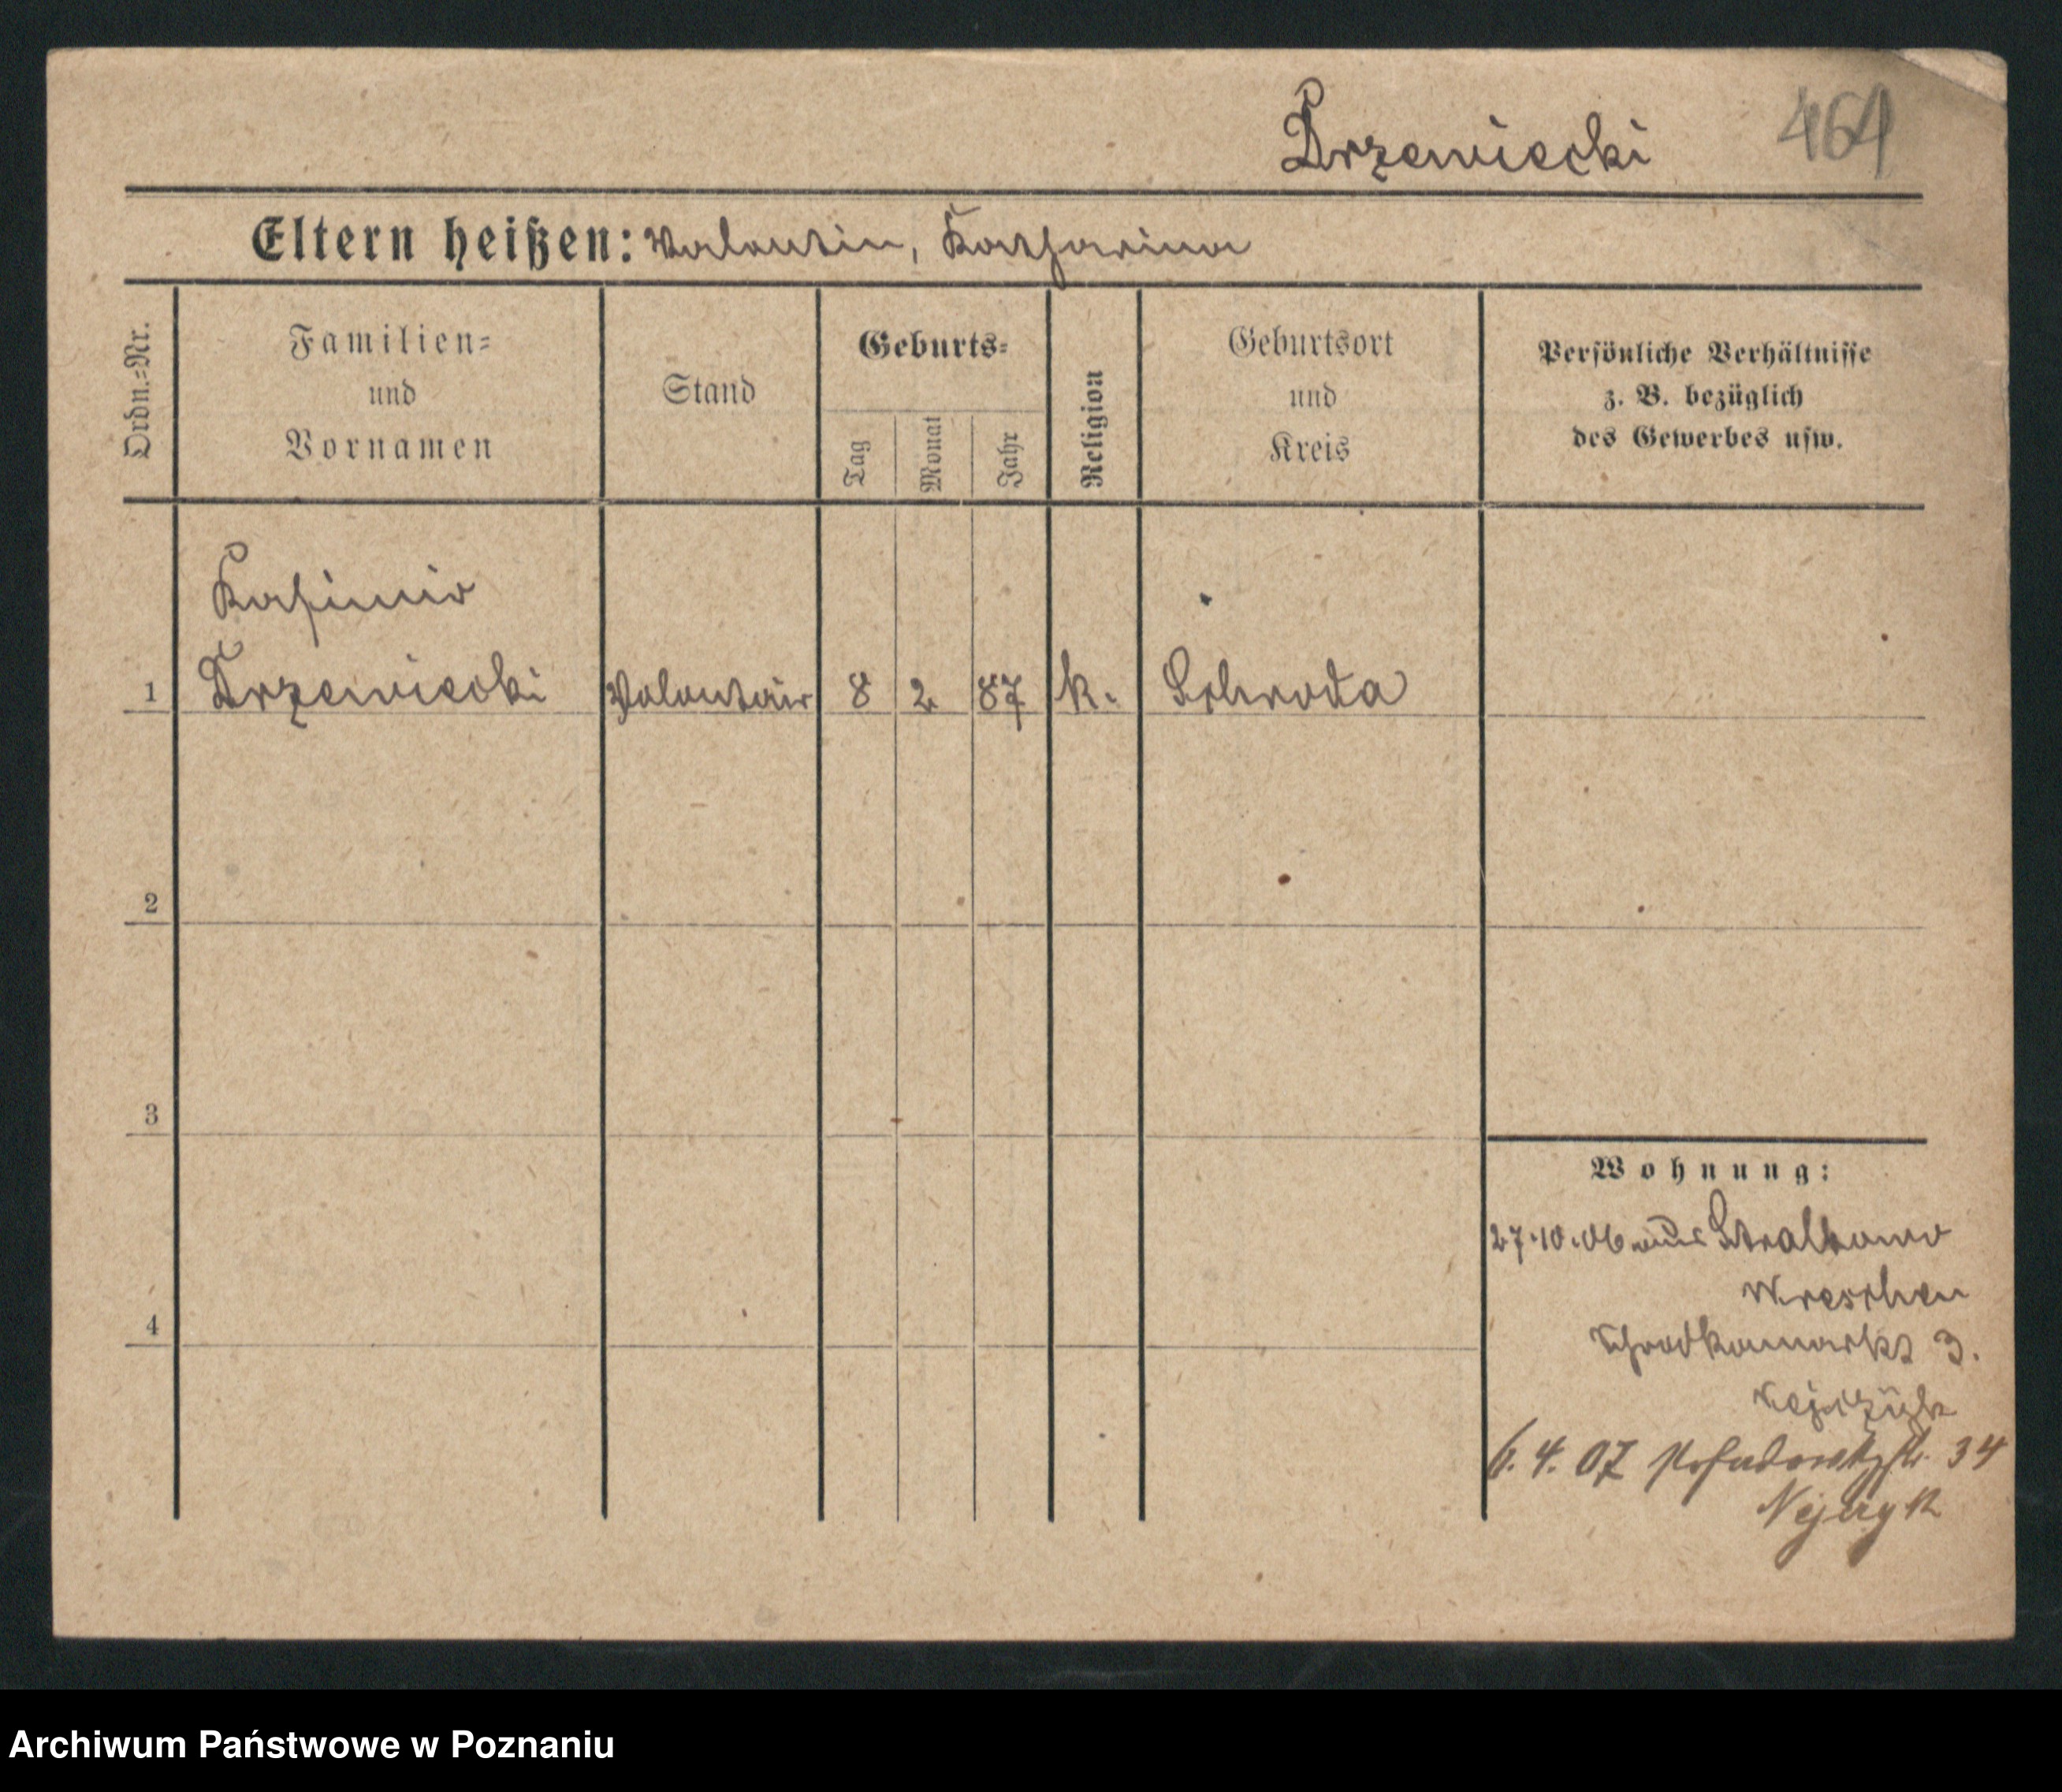 Drzewiecki
464
Eltern heißen: Valentin, Katharina
Ordn.=Nr.
Familien=
und
Vornamen
Stand
Geburts=
Tag
Monat
Jahr
Religion
Geburtsort
und
Kreis
Persönliche Verhältnisse
z. B. bezüglich
des Gewerbes usw.
Kasimir
1 Drzewiecki Volontair 8 2 87 k. Schroda
2
3
4
Wohnung:
27.10.06 aus Stralkowo
Wreschen
Schrodkamarkt 3.
6. 4. 07 34
Archiwum Państwowe w Poznaniu